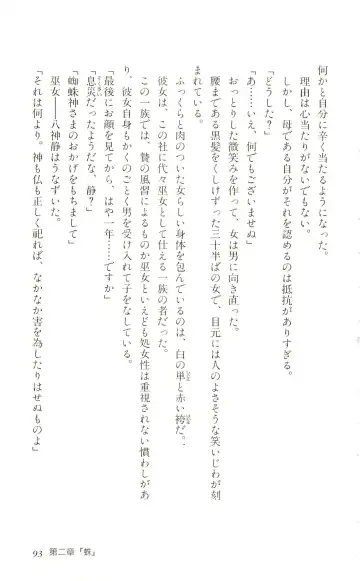 何かと自分に辛く当たるようになった。
理由は心当たりがないでもない。
しかし、母である自分がそれを認めるのは抵抗がありすぎる。
「どうした？」
「あ……いえ、何でもございませぬ」
おっとりした微笑みを作って、女は男に向き直った。
腰まである黒髪をくしけずった三十半ばの女で、目元には人のよさそうな笑いじわが刻
まれている。
ふっくらと肉のついた女らしい身体を包んでいるのは、白の単と赤い袴だ。
彼女は、この社に代々巫女として仕える一族の者だった。
この一族では、贄の風習によるものか巫女といえども処女性は重視されない慣わしがあ
り、彼女自身もかくのごとく男を受け入れて子をなしている。
「最後にお顔を見てから、はや一年……ですか」
「息災だったようだな、静？」
「蜘蛛神さまのおかげをもちまして」
巫女――八神静はうなずいた。
「それは何より。神も仏も正しく祀れば、なかなか害を為したりはせぬものよ」
93 第二章『蛛』